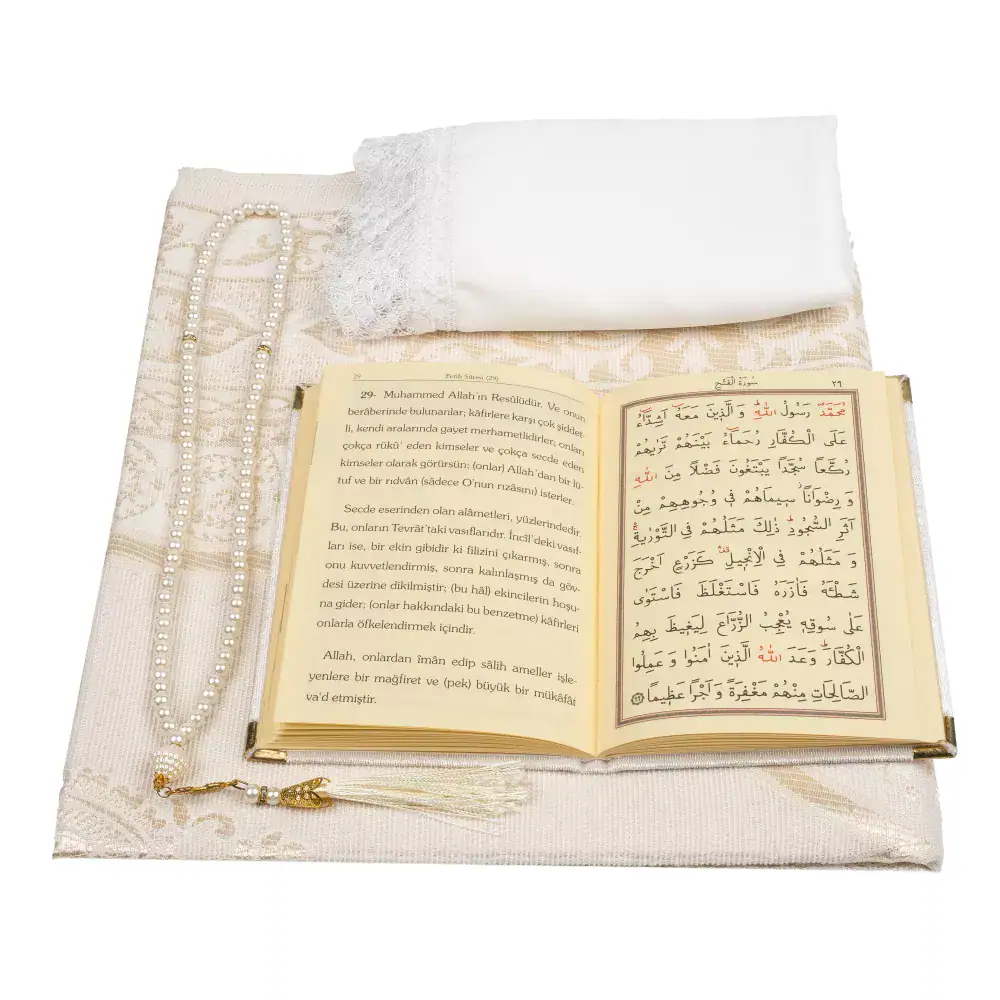 29
Fetih Sûresi (29)
29- Muhammed Allah'ın Resûlüdür. Ve onun
berâberinde bulunanlar; kâfirlere karşı çok şiddet-
li, kendi aralarında gayet merhametlidirler; onları
çokça rükû' eden kimseler ve çokça secde eden
kimseler olarak görürsün; (onlar) Allah'dan bir lü-
tuf ve bir rıdvân (sâdece O'nun rızasını) isterler.
Secde eserinden olan alâmetleri, yüzlerindedir.
Bu, onların Tevrât'taki vasıflarıdır. İncîl'deki vasıf-
ları ise, bir ekin gibidir ki filizini çıkarmış, sonra
onu kuvvetlendirmiş, sonra kalınlaşmış da göv-
desi üzerine dikilmiştir; (bu hâl) ekincilerin hoşu-
na gider; (onlar hakkındaki bu benzetme) kâfirleri
onlarla öfkelendirmek içindir.
Allah, onlardan îmân edip sâlih ameller işle-
yenlere bir mağfiret ve (pek) büyük bir mükâfât
va'd etmiştir.
سُورَةُ الْفَتْحِ
٢٩
مُحَمَّدٌ رَسُولُ اللّٰهِ وَ الَّذِينَ مَعَهُٓ اَشِدَّٓاءُ
عَلَى الْكُفَّارِ رُحَمَٓاءُ بَيْنَهُمْ تَرٰيهُمْ
رُكَّعًا سُجَّدًا يَبْتَغُونَ فَضْلًا مِنَ اللّٰهِ
وَ رِضْوَانًاۘ سِيمَاهُمْ فِى وُجُوهِهِمْ مِنْ
اَثَرِ السُّجُودِۜ ذٰلِكَ مَثَلُهُمْ فِى التَّوْرٰيةِۚ
وَ مَثَلُهُمْ فِى الْاِنْجِيلِۛ كَزَرْعٍ اَخْرَجَ
شَطْـَٔهُ فَاٰزَرَهُ فَاسْتَغْلَظَ فَاسْتَوٰى
عَلٰى سُوقِهِ يُعْجِبُ الزُّرَّاعَ لِيَغِيظَ بِهِمُ
الْكُفَّارَۜ وَعَدَ اللّٰهُ الَّذِينَ اٰمَنُوا وَ عَمِلُوا
الصَّالِحَاتِ مِنْهُمْ مَغْفِرَةً وَ اَجْرًا عَظِيمًا ﴿٢٩﴾